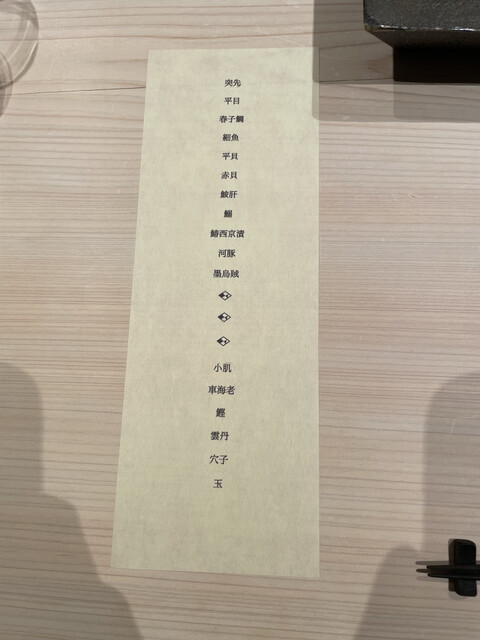 突先
平目
春子鯛
細魚
平貝
赤貝
鮟肝
鰯
鰆西京漬
河豚
墨烏賊
小肌
車海老
鰹
雲丹
穴子
玉